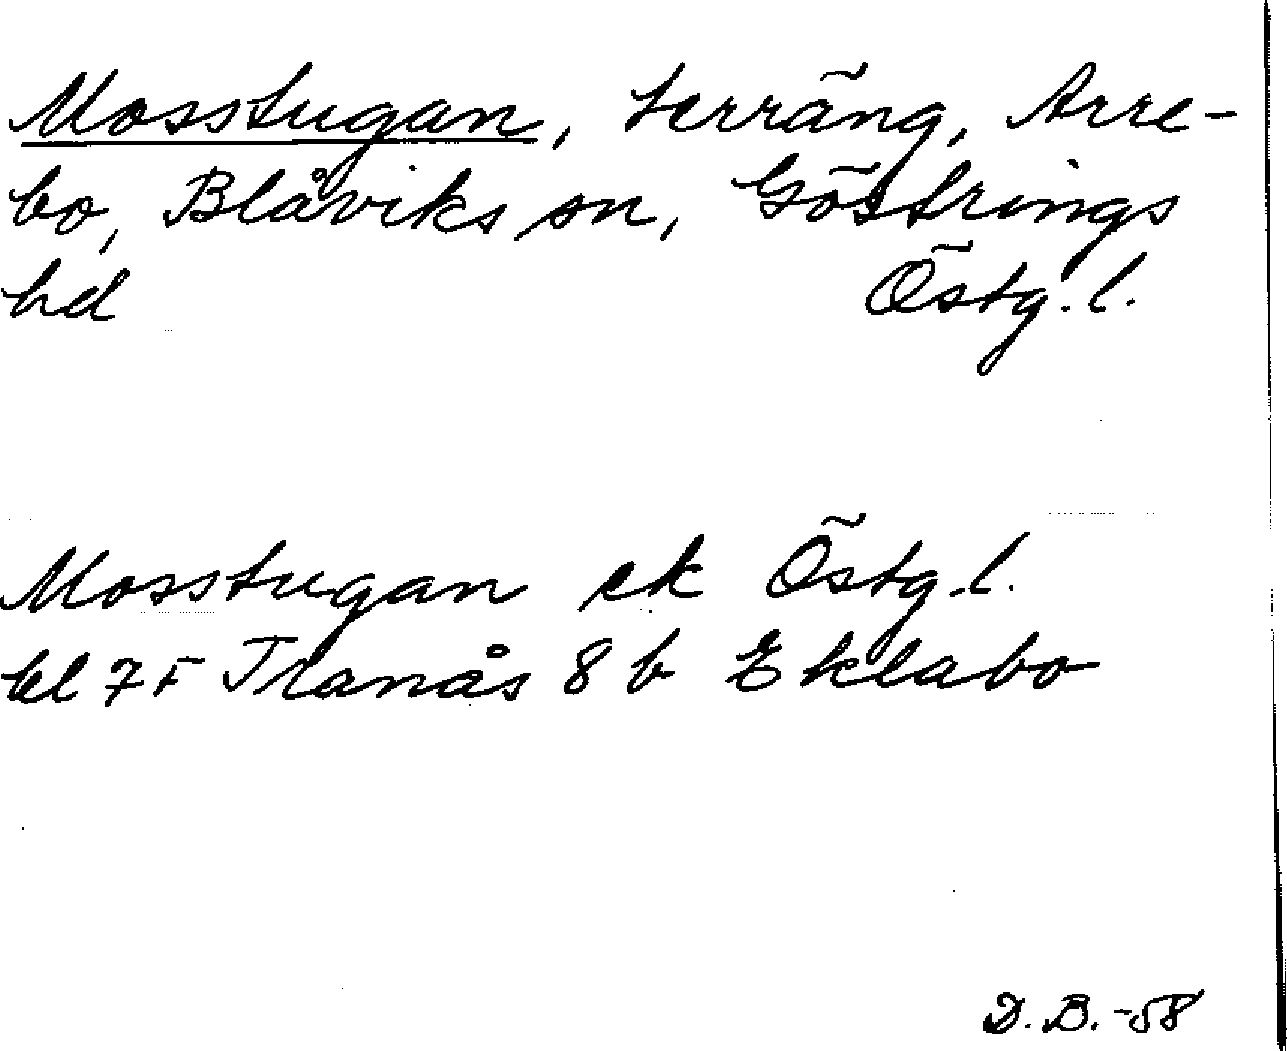 Mosstugan, terräng, Arre-
bo, Blåviks sn, Göstrings
hd Östg. l.
Mosstugan ek Östg. l.
bl 7F Tranås 8 b Eklabo
D. B. -58